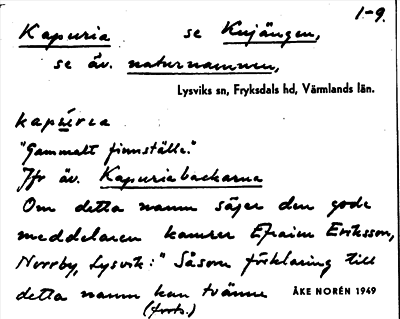 1-9.
Kapuria se Kujängen,
se äv. naturnamnen,
Lysviks sn, Fryksdals hd, Värmlands län.
kapúrea
"Gammalt finnställe."
Jfr äv. Kapuriabackarna
Om detta namn säger den gode
meddelaren kamrer Efraim Eriksson,
Norrby, Lysvik: "Såsom förklaring till
detta namn kan tvänne ÅKE NORÉN 1949
(forts.)